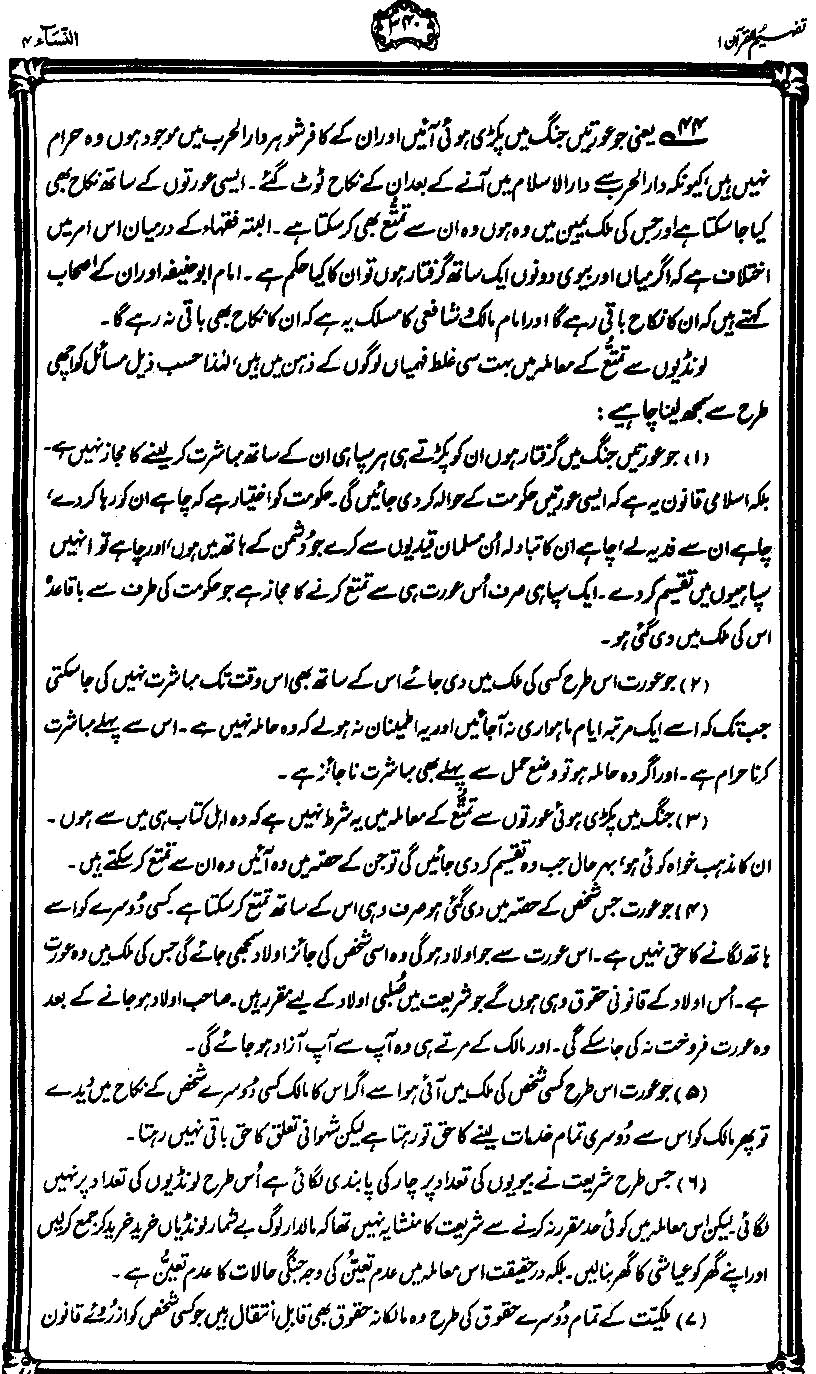 تفہیم القرآن ۱
۳۴۰
النساء ۴
۴۴ یعنی جو عورتیں جنگ میں پکڑی ہوئی آئیں اور ان کے کافر شوہر دار الحرب میں موجود ہوں وہ حرام
نہیں ہیں، کیونکہ دار الحرب سے دار الاسلام میں آنے کے بعد ان کے نکاح ٹوٹ گئے۔ ایسی عورتوں کے ساتھ نکاح بھی
کیا جا سکتا ہے اور جس کی ملک یمین میں وہ ہوں وہ ان سے تمتُّع بھی کر سکتا ہے۔ البتہ فقہاء کے درمیان اس امر میں
اختلاف ہے کہ اگر میاں اور بیوی دونوں ایک ساتھ گرفتار ہوں تو ان کا کیا حکم ہے۔ امام ابو حنیفہ اور ان کے اصحاب
کہتے ہیں کہ ان کا نکاح باقی رہے گا اور امام مالک و شافعی کا مسلک یہ ہے کہ ان کا نکاح بھی باقی نہ رہے گا۔
لونڈیوں سے تمتُّع کے معاملہ میں بہت سی غلط فہمیاں لوگوں کے ذہن میں ہیں، لہٰذا حسب ذیل مسائل کو اچھی
طرح سے سمجھ لینا چاہیے:
(۱) جو عورتیں جنگ میں گرفتار ہوں ان کو پکڑتے ہی ہر سپاہی ان کے ساتھ مباشرت کر لینے کا مجاز نہیں ہے۔
بلکہ اسلامی قانون یہ ہے کہ ایسی عورتیں حکومت کے حوالہ کر دی جائیں گی۔ حکومت کو اختیار ہے کہ چاہے ان کو رہا کر دے،
چاہے ان سے فدیہ لے، چاہے ان کا تبادلہ اُن مسلمان قیدیوں سے کرے جو دُشمن کے ہاتھ میں ہوں، اور چاہے تو انہیں
سپاہیوں میں تقسیم کر دے۔ ایک سپاہی صرف اُس عورت ہی سے تمتع کرنے کا مجاز ہے جو حکومت کی طرف سے باقاعدہ
اس کی ملک میں دی گئی ہو۔
(۲) جو عورت اس طرح کسی کی ملک میں دی جائے اس کے ساتھ بھی اس وقت تک مباشرت نہیں کی جا سکتی
جب تک کہ اسے ایک مرتبہ ایام ماہواری نہ آ جائیں اور یہ اطمینان نہ ہولے کہ وہ حاملہ نہیں ہے۔ اس سے پہلے مباشرت
کرنا حرام ہے۔ اور اگر وہ حاملہ ہو تو وضع حمل سے پہلے بھی مباشرت ناجائز ہے۔
(۳) جنگ میں پکڑی ہوئی عورتوں سے تمتُّع کے معاملہ میں یہ شرط نہیں ہے کہ وہ اہل کتاب ہی میں سے ہوں۔
ان کا مذہب خواہ کوئی ہو، بہر حال جب وہ تقسیم کر دی جائیں گی تو جن کے حصّہ میں وہ آئیں وہ ان سے تمتع کر سکتے ہیں۔
(۴) جو عورت جس شخص کے حصّہ میں دی گئی ہو صرف وہی اس کے ساتھ تمتع کر سکتا ہے۔ کسی دُوسرے کو اسے
ہاتھ لگانے کا حق نہیں ہے۔ اس عورت سے جو اولاد ہو گی وہ اسی شخص کی جائز اولاد سمجھی جائے گی جس کی ملک میں وہ عورت
ہے۔ اُس اولاد کے قانونی حقوق وہی ہوں گے جو شریعت میں صُلبی اولاد کے لیے مقرر ہیں۔ صاحب اولاد ہو جانے کے بعد
وہ عورت فروخت نہ کی جا سکے گی۔ اور مالک کے مرتے ہی وہ آپ سے آپ آزاد ہو جائے گی۔
(۵) جو عورت اس طرح کسی شخص کی ملک میں آئی ہو اسے اگر اس کا مالک کسی دُوسرے شخص کے نکاح میں دیدے
تو پھر مالک کو اس سے دُوسری تمام خدمات لینے کا حق تو رہتا ہے لیکن شہوانی تعلق کا حق باقی نہیں رہتا۔
(۶) جس طرح شریعت نے بیویوں کی تعداد پر چار کی پابندی لگائی ہے اُس طرح لونڈیوں کی تعداد پر نہیں
لگائی۔ لیکن اس معاملہ میں کوئی حد مقرر نہ کرنے سے شریعت کا منشا یہ نہیں تھا کہ مالدار لوگ بے شمار لونڈیاں خرید خرید کر جمع کر لیں
اور اپنے گھر کو عیاشی کا گھر بنا لیں۔ بلکہ درحقیقت اس معاملہ میں عدم تعیّن کی وجہ جنگی حالات کا عدم تعیّن ہے۔
(۷) ملکیت کے تمام دُوسرے حقوق کی طرح وہ مالکانہ حقوق بھی قابل انتقال ہیں جو کسی شخص کو ازروئے قانون